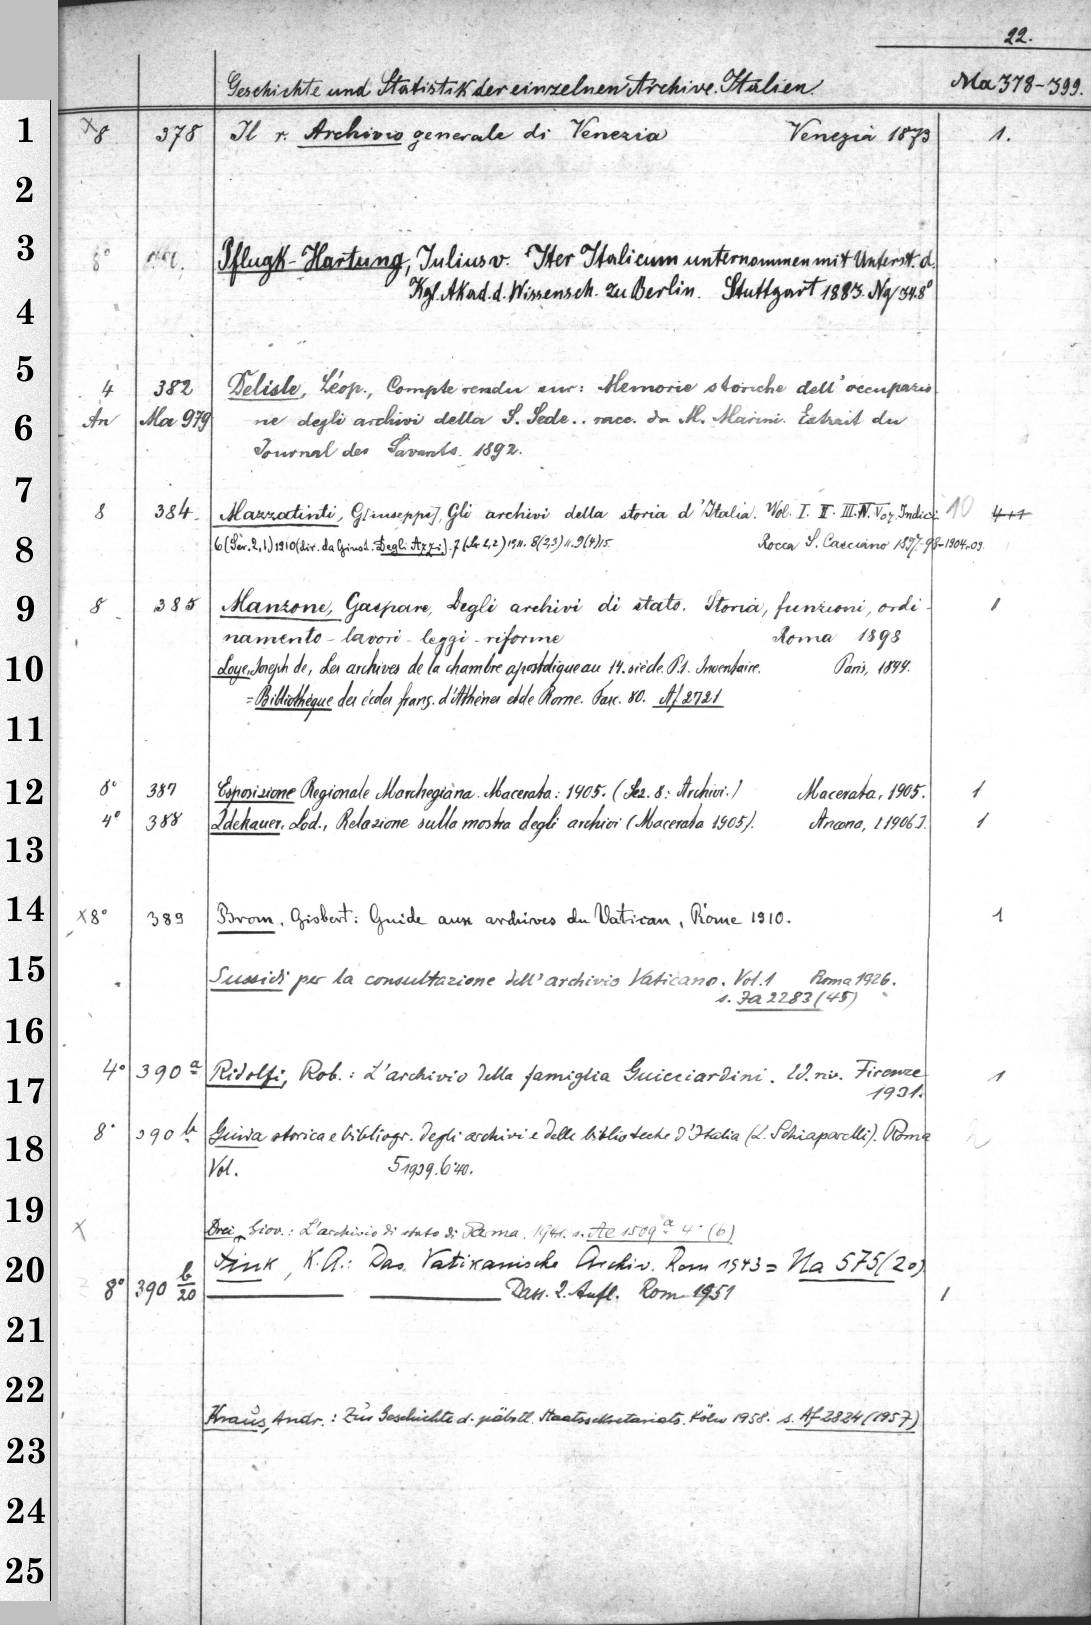 22.
Geschichte und Statistik der einzelnen Archive. Italien. Ma 378-399.
1 x8 378 Il r. Archivio generale di Venezia Venezia 1873 1.
2
3 8° Pflugk-Hartung, Julius v. Iter Italicum unternommen mit Unterst. d.
4 Kgl. Akad. d. Wissensch. zu Berlin. Stuttgart 1883. Nq 348°
5 4 382 Delisle, Léop., Compte rendu sur: Memorie storiche dell' occupazio-
6 An Ma 979 ne degli archivi della S. Sede.. racc. da M. Marini. Extrait du
Journal des Savants. 1892.
7 8 384. Mazzatinti, G[iuseppe], Gli archivi della storia d'Italia. Vol. I. II. III. IV. V. Indici 10 4+1
8 6 (Ser. 2,1) 1910 (dir. da Giust. Degli Azzi). 7 (Ser 2,2) 1911. 8(2,3) 9(4)15 Rocca S. Casciano 1897-98-1904.09.
9 8 385 Manzone, Gaspare, Degli archivi di stato. Storia, funzioni, ordi- 1
namento - lavori - leggi - riforme Roma 1898
10 Loye, Joseph de, Les archives de la chambre apostolique au 14. siècle. P.1. Inventaire. Paris, 1899.
= Bibliothèque des écoles franç. d'Athènes et de Rome. Fasc. 80. Af 2721
11
12 8° 387 Esposizione Regionale Marchegiana. Macerata: 1905. (Sez. 8: Archivi.) Macerata, 1905. 1
4° 388 Zdekauer, Lod., Relazione sulla mostra degli archivi (Macerata 1905). Ancona, [1906]. 1
13
14 x8° 389 Brom, Gisbert: Guide aux archives du Vatican, Rome 1910. 1
15 Sussidi per la consultazione dell' archivio Vaticano. Vol. 1 Roma 1926.
s. Ja 2283 (45)
16
17 4° 390 a Ridolfi, Rob.: L'archivio della famiglia Guicciardini. Ed. riv. Firenze 1
1931.
18 8° 390 b Guida storica e bibliogr. degli archivi e delle biblioteche d'Italia (L. Schiaparelli). Roma
Vol. 5 1939. 6 '40.
19 x Drei, Giov.: L'archivio di stato di Parma. 1941. s. Ae 1509 a 4° (6)
20 Fink, K.A.: Das Vatikanische Archiv. Rom 1943 = Na 575 (20)
8° 390 b/20 Dass. 2. Aufl. Rom 1951 1
21
22
Kraus, Andr.: Zur Geschichte d. päbstl. Staatssekretariats. Köln 1958. s. Af 2824 (1957)
23
24
25